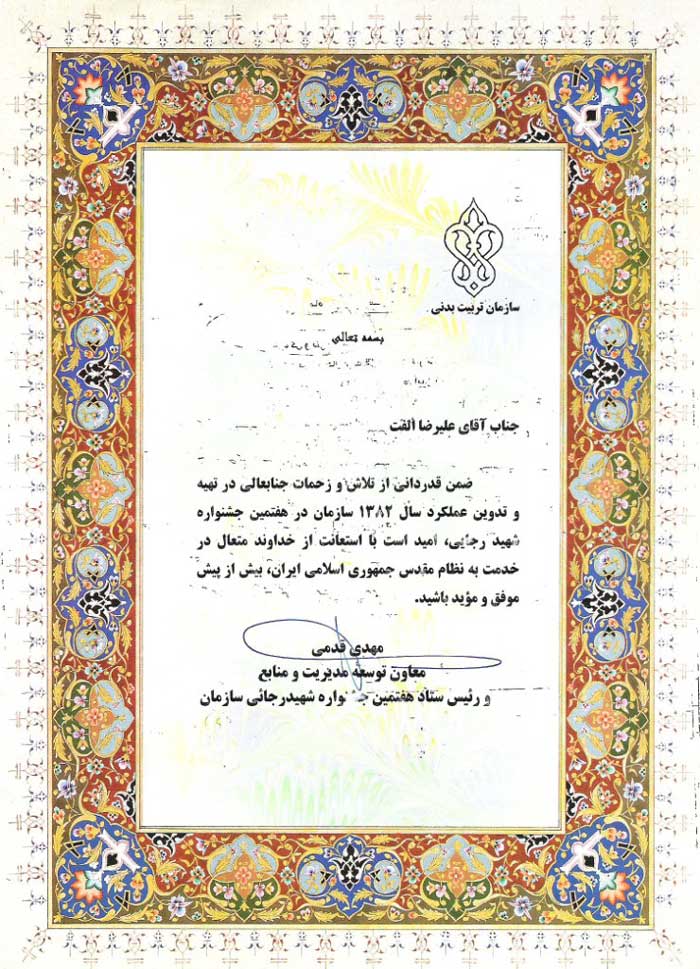 سازمان تربیت بدنی
بسمه تعالی
جناب آقای علیرضا الفت
ضمن قدردانی از تلاش و زحمات جنابعالی در تهیه
و تدوین عملکرد سال ۱۳۸۲ سازمان در هفتمین جشنواره
شهید رجایی، امید است با استعانت از خداوند متعال در
خدمت به نظام مقدس جمهوری اسلامی ایران، بیش از پیش
موفق و مؤید باشید.
مهدی قدمی
معاون توسعه مدیریت و منابع
و رئیس ستاد هفتمین جشنواره شهیدرجائی سازمان